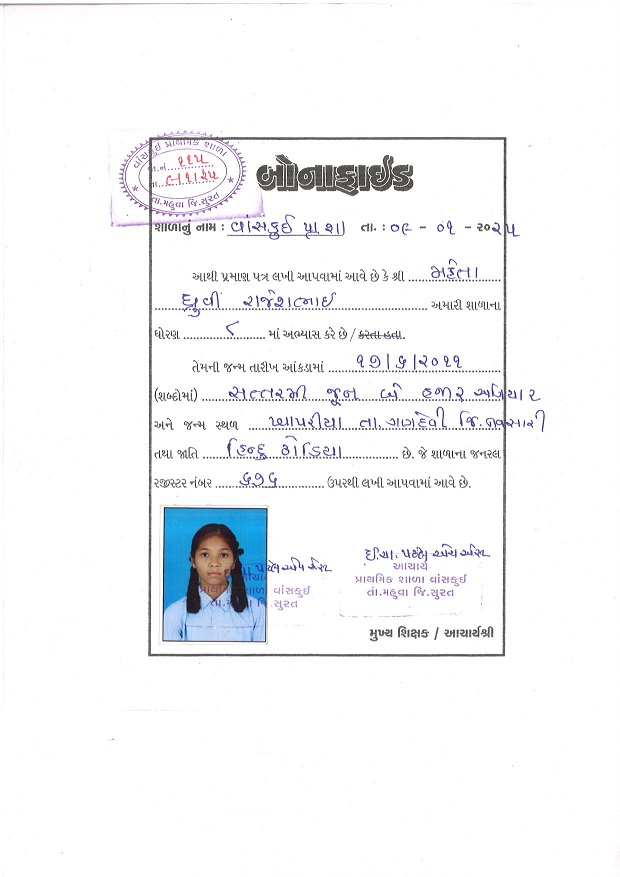 વાંસકુઈ પ્રાથમિક શાળા
જા.નં. ૨૨૫
તા. ૯-૧-૨૫
તા.મહુવા જિ.સુરત
બોનાફાઈડ
શાળાનું નામ : વાંસકુઈ પ્રા શા તા. : ૦૯ - ૦૧ - ૨૦૨૫
આથી પ્રમાણ પત્ર લખી આપવામાં આવે છે કે શ્રી મહેતા
ધ્રુવી રાજેશભાઈ અમારી શાળાના
ધોરણ ૮ માં અભ્યાસ કરે છે / કરતા હતા.
તેમની જન્મ તારીખ આંકડામાં ૧૭/૬/૨૦૧૧
(શબ્દોમાં) સત્તરમી જૂન બે હજાર અગિયાર
અને જન્મ સ્થળ ખાપરીયા તા. ગણદેવી જિ. નવસારી
તથા જાતિ હિન્દુ ઢોડિયા છે. જે શાળાના જનરલ
રજીસ્ટર નંબર ૬૭૬ ઉપરથી લખી આપવામાં આવે છે.
પટેલ
આચાર્ય
પ્રાથમિક શાળા વાંસકુઈ
તા.મહુવા જિ.સુરત
આચાર્ય
પ્રાથમિક શાળા વાંસકુઈ
તા.મહુવા જિ.સુરત
મુખ્ય શિક્ષક / આચાર્યશ્રી